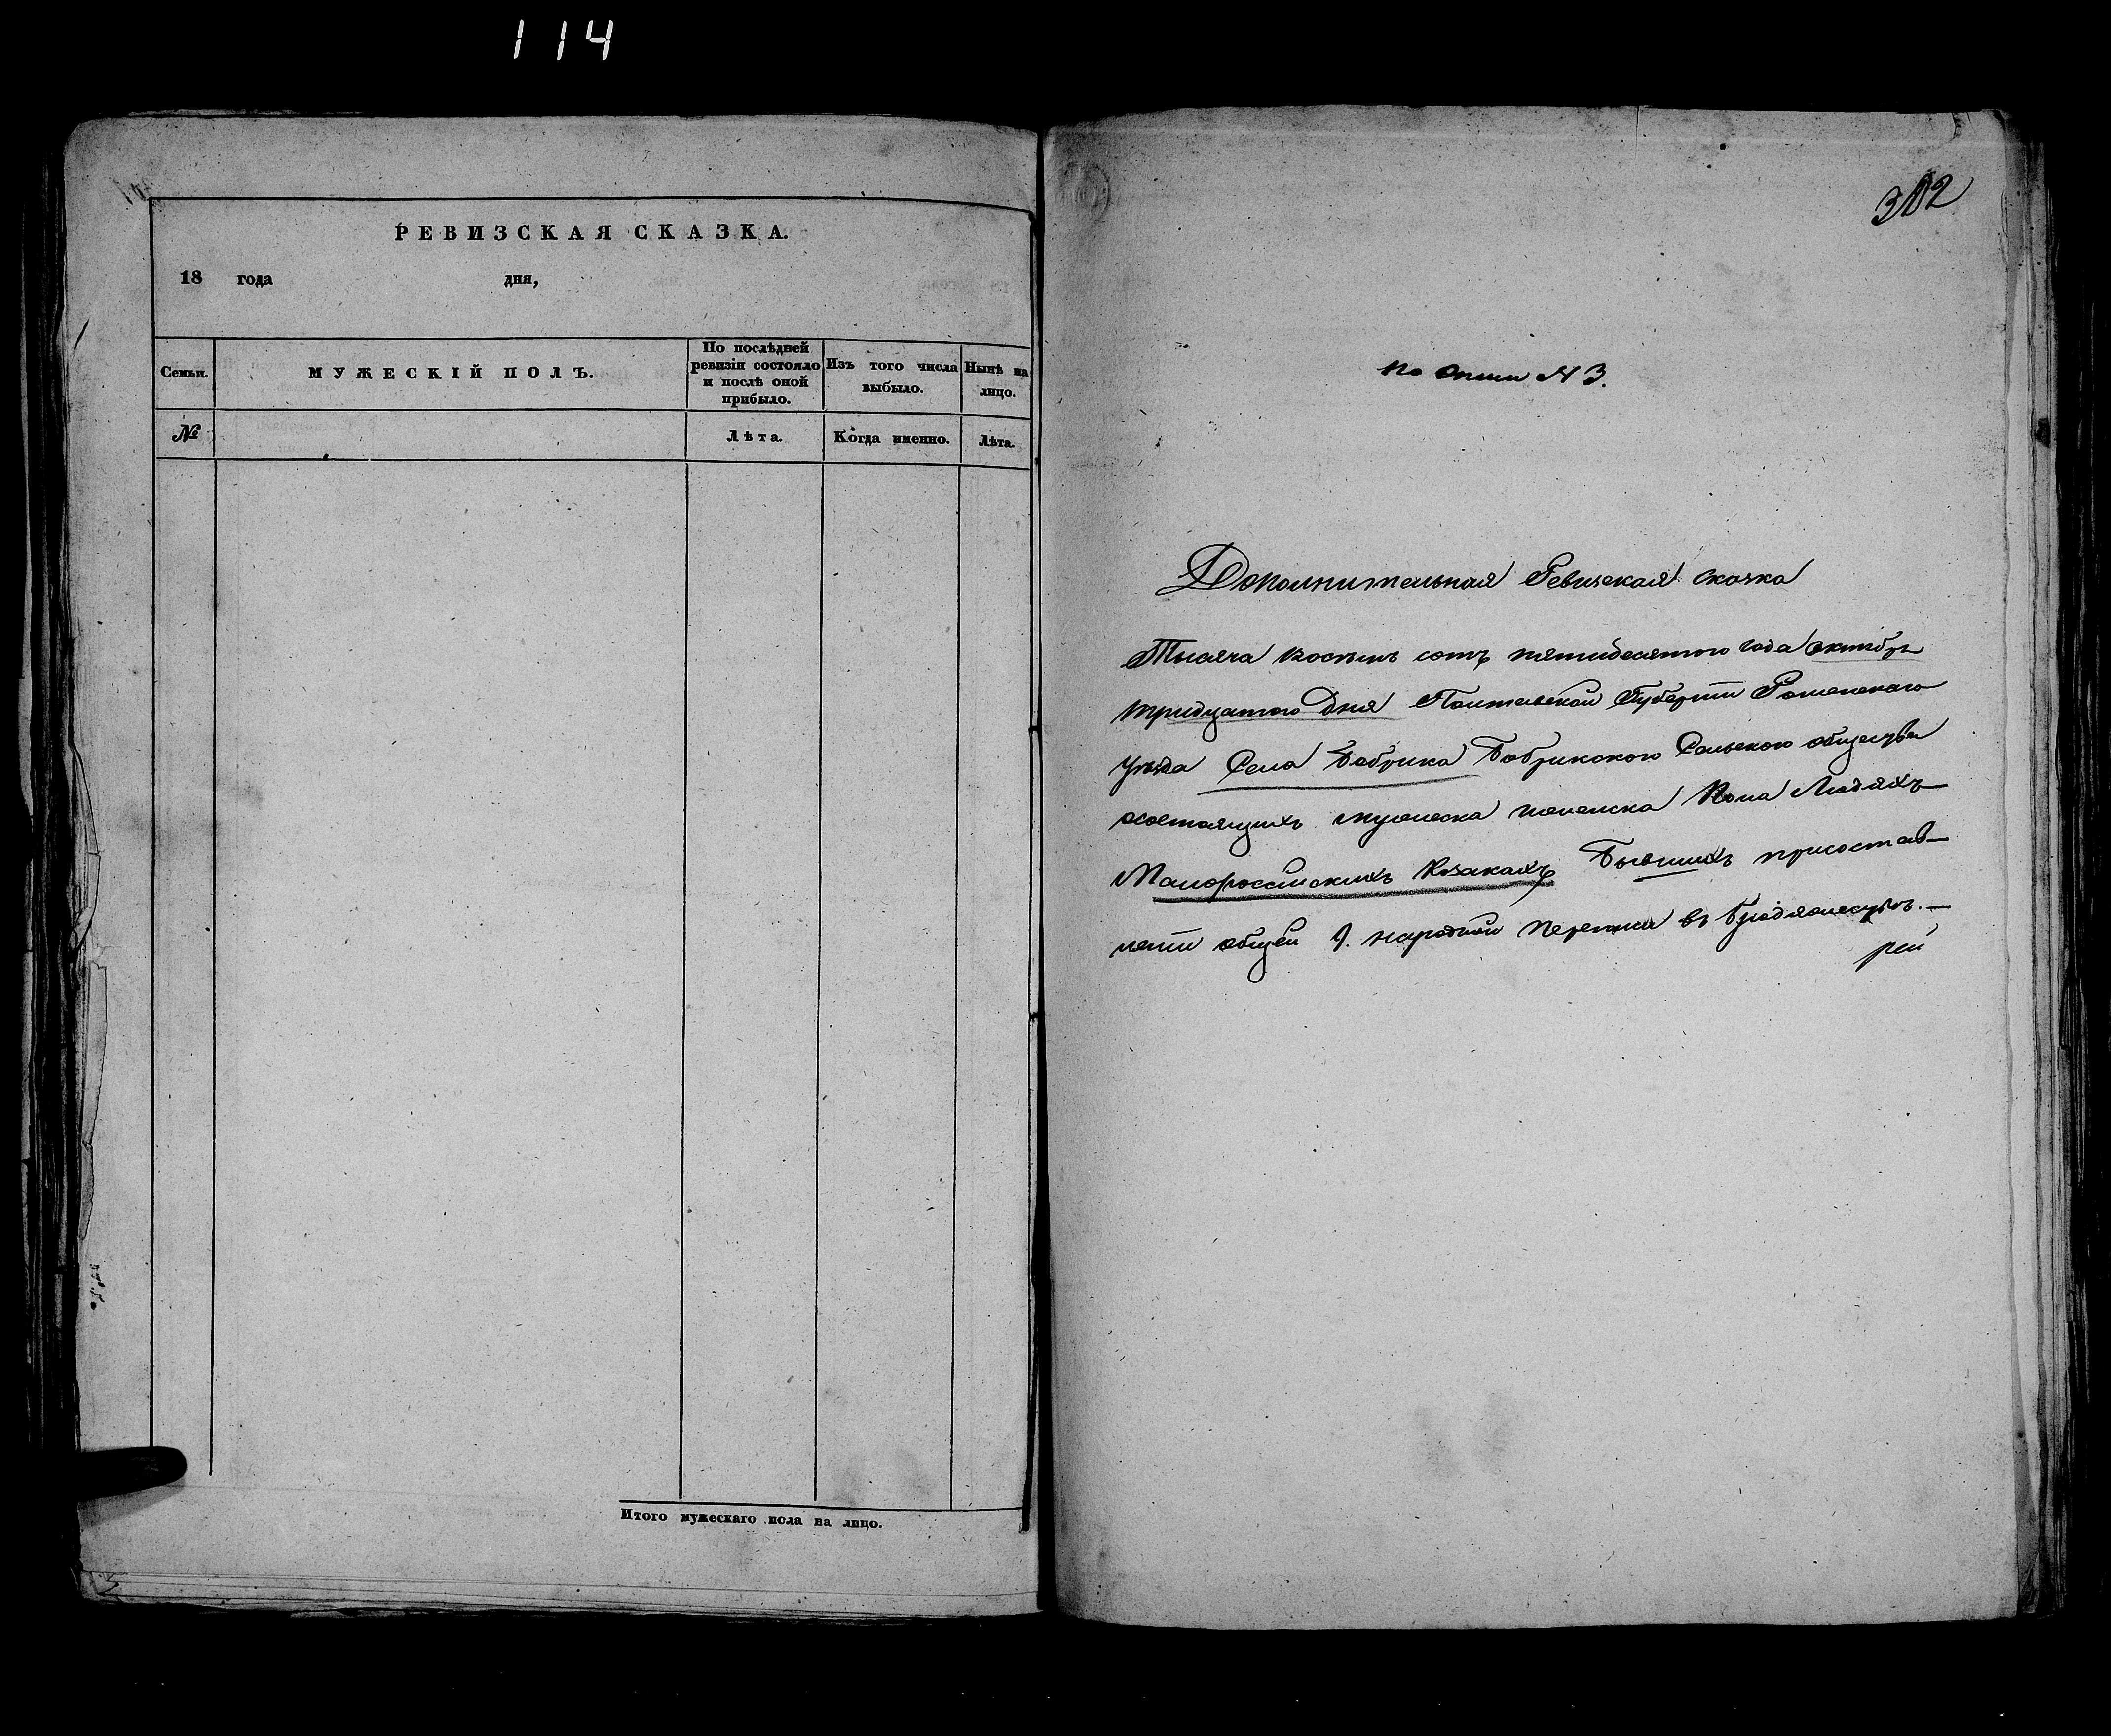 114
РЕВИЗСКАЯ СКАЗКА.
18 года дня,
Семьи.
МУЖЕСКІЙ ПОЛЪ.
По послѣдней ревизіи состояло и послѣ оной прибыло.
Изъ того числа выбыло.
Нынѣ на лицо.
№
Лѣта.
Когда именно.
Лѣта.
Итого мужескаго пола на лицо.
302
По описи № 3.
Дополнительная Ревизская сказка
Тысяча восемь сотъ пятидесятого года октября
тридцатого дня Полтавской Губерніи Роменского
уѣзда Села Бобрика Бобрикского Сельского общества
состоящихъ мужеска женска Пола Людяхъ
Малороссійскихъ Козакахъ Бывшихъ присостав–
леніи общей 9. народной переписи въ